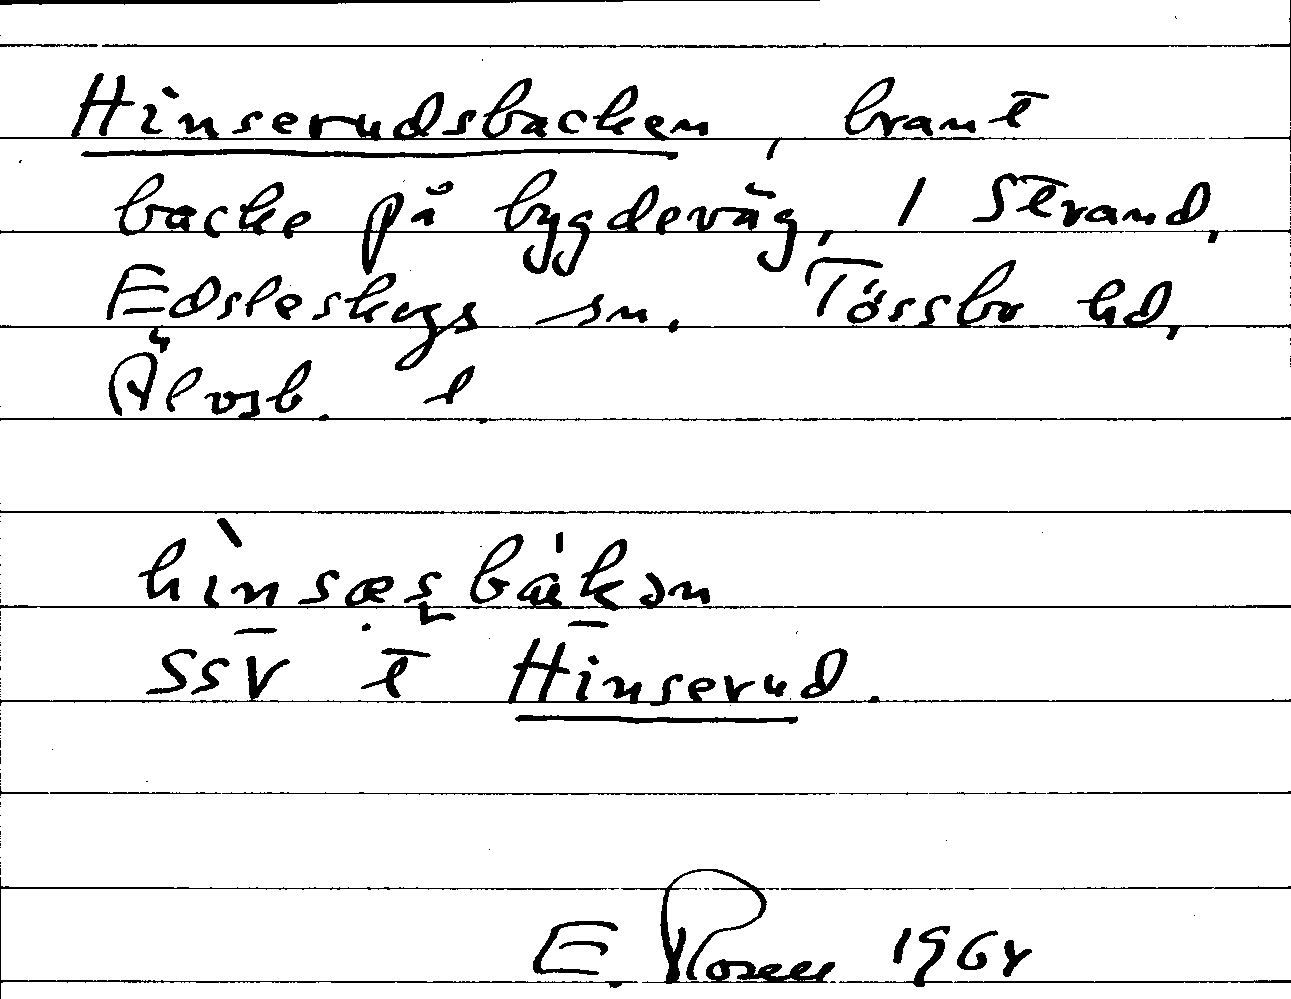 Hinserudsbacken, brant
backe på bygdeväg, i Strand,
Edsleskogs sn. Tössbo hd,
Älvsb. l.
hìnsæṣbákən
SSV t Hinserud.
E. Rosell 1964